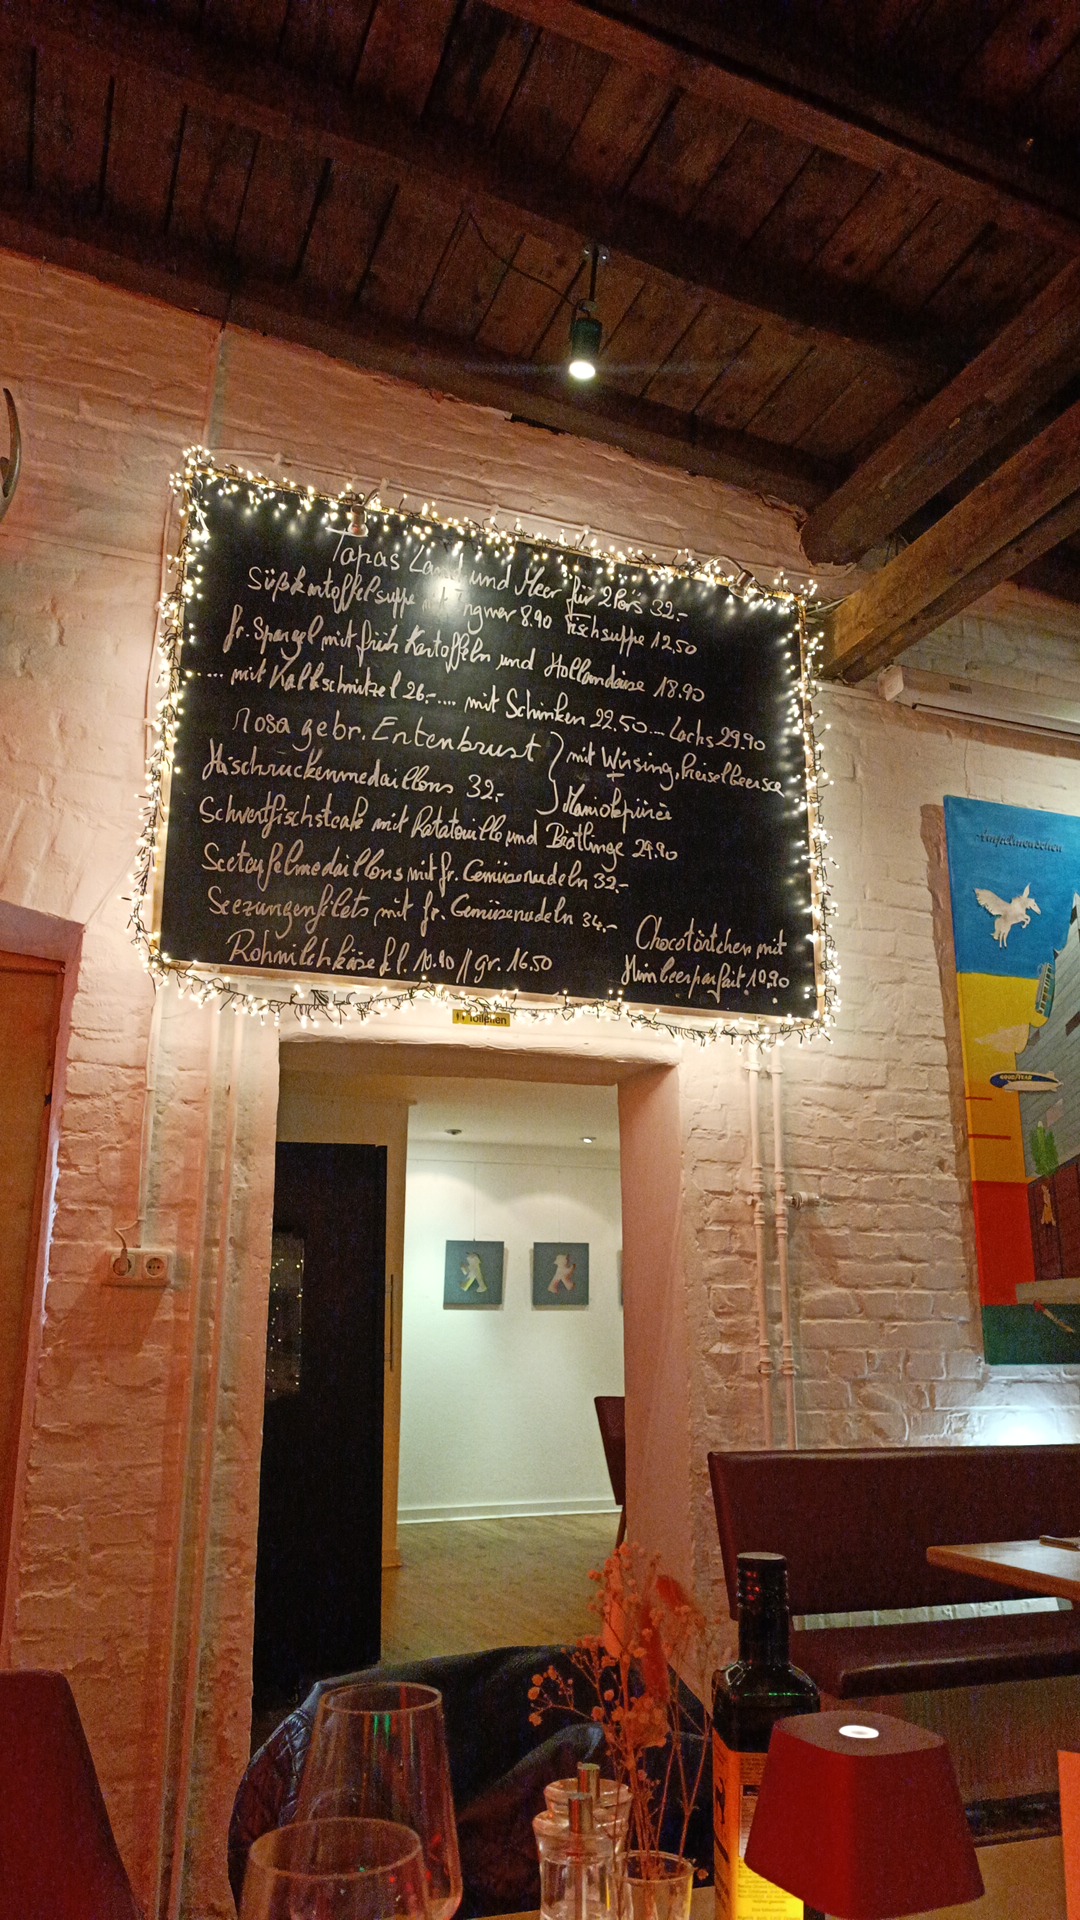 Tapas Land und Meer für 2 Pers 32.-
Süßkartoffelsuppe mit Ingwer 8.90 Fischsuppe 12.50
fr. Spargel mit früh Kartoffeln und Hollandaise 18.90
.... mit Kalbschnitzel 26.- .... mit Schinken 22.50 ... Lachs 29.90
rosa gebr. Entenbrust } mit Wirsing, Preiselbeersce
Hirschrückenmedaillons 32.- Maniokpüree
Schwertfischsteak mit Ratatouille und Brätlinge 29.90
Seeteufelmedaillons mit fr. Gemüsenudeln 32.-
Seezungenfilets mit fr. Gemüsenudeln 34.-
Rohmilchkäse kl. 10.90 // gr. 16.50
Chocotörtchen mit
Himbeerparfait 10,90
Toiletten
Ampelmännchen
GOODYEAR